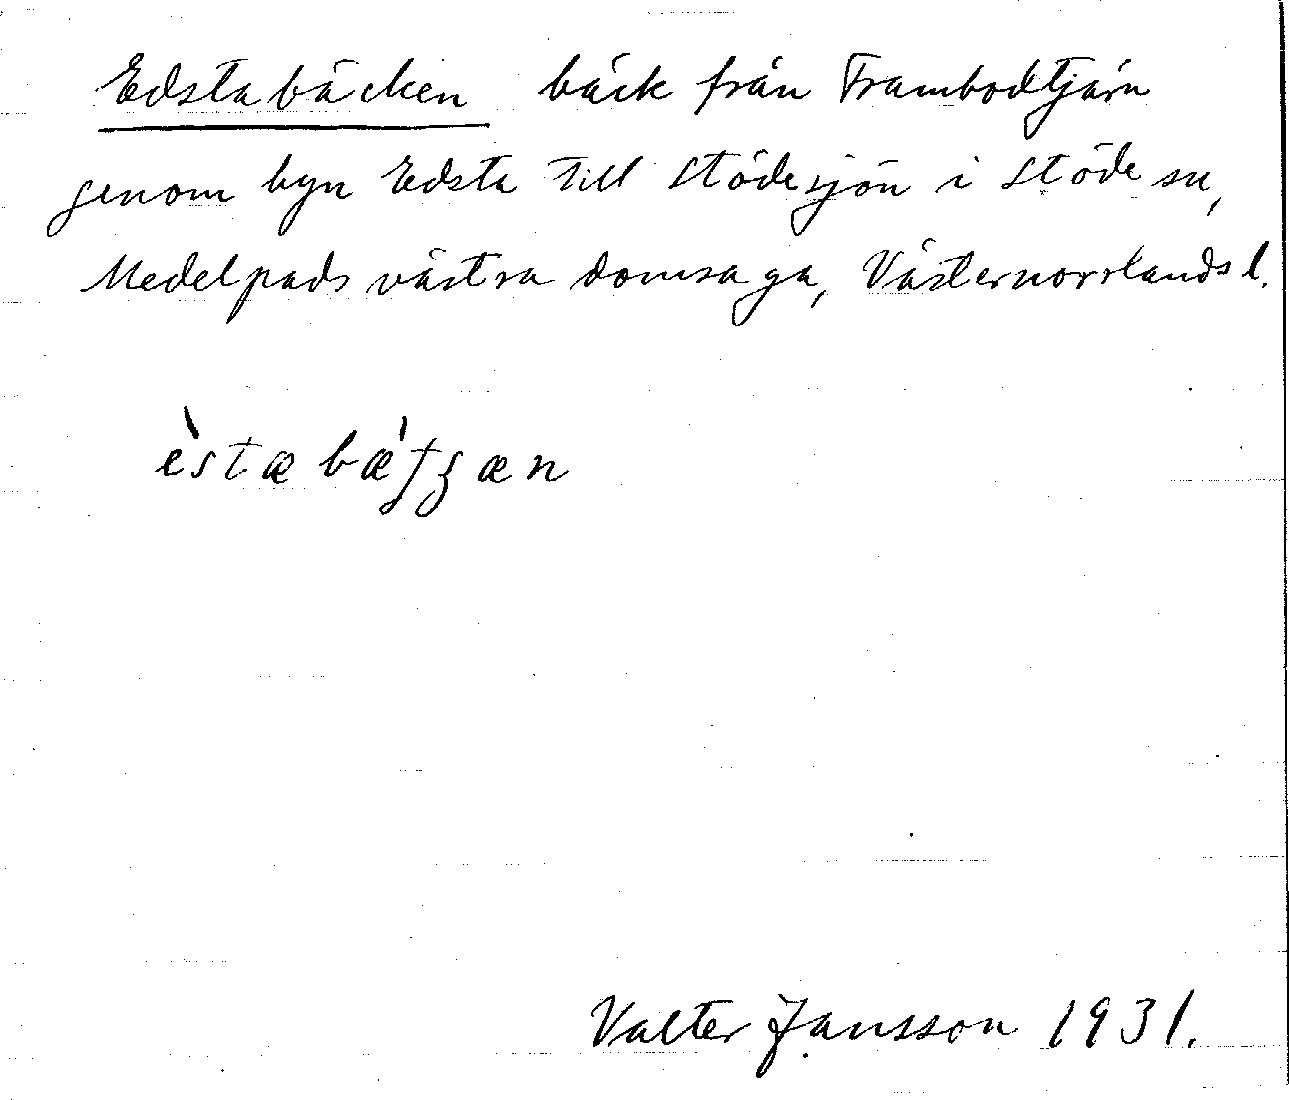 Edstabäcken bäck från Frambodtjärn
genom byn Edsta till Stödesjön i Stöde sn,
Medelpads västra domsaga, Västernorrlands l.
èstæbæ'ʈʂæn
Valter Jansson 1931.